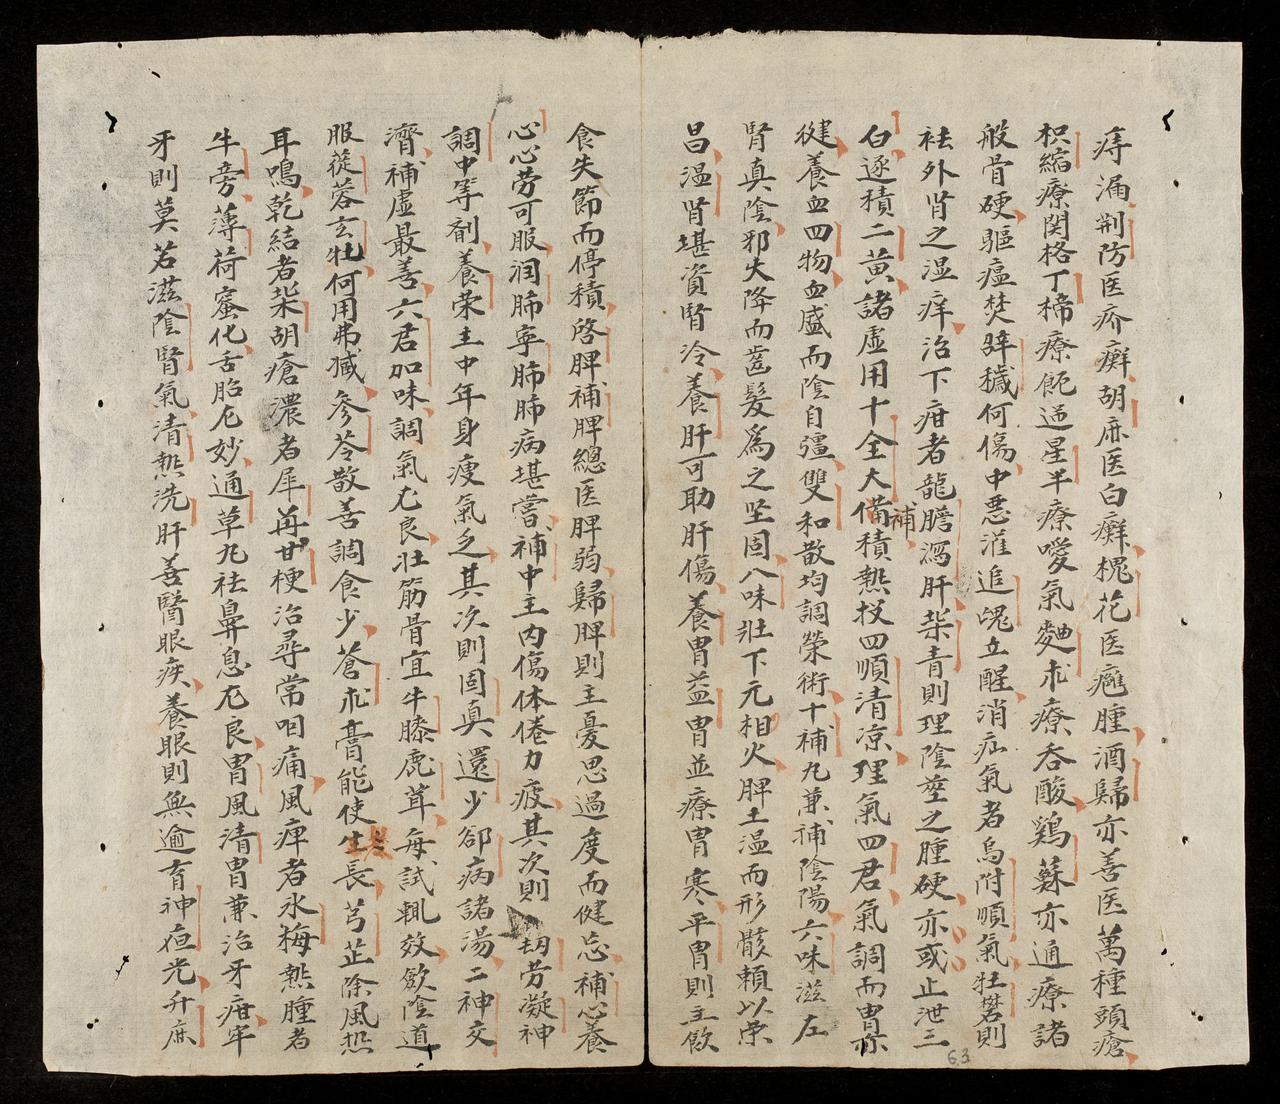 痔漏荆防医疥癬胡麻医白癬槐花医瘧腫酒歸亦善医萬種頭瘡
枳縮療関格丁檸療飢逆星半療噯氣麯朮療呑酸鷄蘇亦通療諸
般骨硬驅瘟焚辟穢何傷中悪灌追魄立醒消疝氣者烏附順氣牡礬則
袪外肾之温痒治下疳者龍膽瀉肝柴青則理陰莖之腫硬亦或止泄三
白逐積二黄諸虚用十全大補積熱投四順清凉理氣四君氣調而胃亦
健養血四物血盛而陰自彊雙和散均調榮術十補九兼補陰陽六味滋左
腎真陰邪火降而齒髮爲之堅固八味壯下元相火脾土温而形骸頼以荣
昌温肾堪資腎冷養肝可助肝傷養胃益胃並療胃寒平胃則主飲
食失節而停積啓脾補脾總医脾弱歸脾則主憂思過度而健忘補心養
心心劳可服润肺寧肺肺病堪嘗補中主内傷体倦力疲其次則劫劳凝神
調中等剤養荣主中年身痩氣乏其次則固真還少郤病諸湯二神交
濟補虚最善六君加味調氣尤良壯筋骨宜牛膝鹿茸每試輒效歛陰道
服蓯蓉玄牡何用弗臧参苓散善調食少蒼朮膏能使生長芎芷除風熱
耳鳴乾結者柴胡瘡濃者犀苒甘梗治尋常咽痛風痺者氷梅熱腫者
牛旁薄荷蜜化舌胎尤妙通草九袪鼻息尤良胃風清胃兼治牙疳牢
牙則莫若滋陰腎氣清熱洗肝善醫眼疾養眼則無逾育神夜光升麻
63